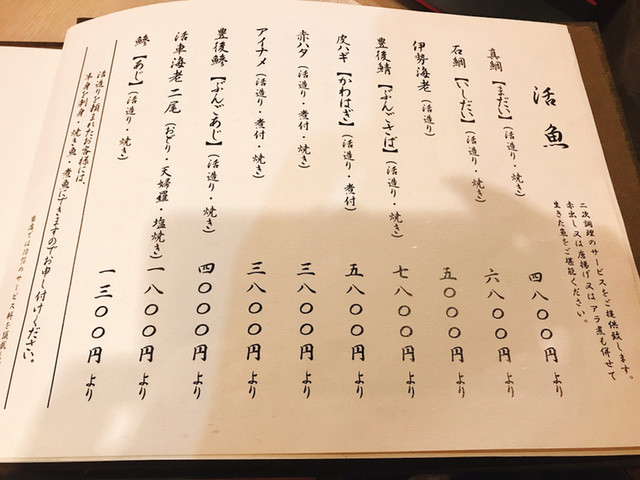 活魚
二次調理のサービスをご提供致します。
赤出し又は唐揚げ又はアラ煮も併せて
生きた魚をご堪能ください。
真鯛【まだい】(活造り・焼き) 四八〇〇円より
石鯛【いしだい】(活造り・焼き) 六八〇〇円より
伊勢海老(活造り) 五〇〇〇円より
豊後鯖【ぶんごさば】(活造り・焼き) 七八〇〇円より
皮ハギ【かわはぎ】(活造り・煮付) 五八〇〇円より
赤ハタ(活造り・煮付・焼き) 三八〇〇円より
アイナメ(活造り・煮付・焼き) 三八〇〇円より
豊後鯵【ぶんごあじ】(活造り・焼き) 四〇〇〇円より
活車海老 二尾(おどり・天婦羅・塩焼き) 一八〇〇円より
鯵【あじ】(活造り・焼き) 一三〇〇円より
活造りを頼まれたお客様には、
本身を刺身・焼き魚・煮魚にできますのでお申し付けください。